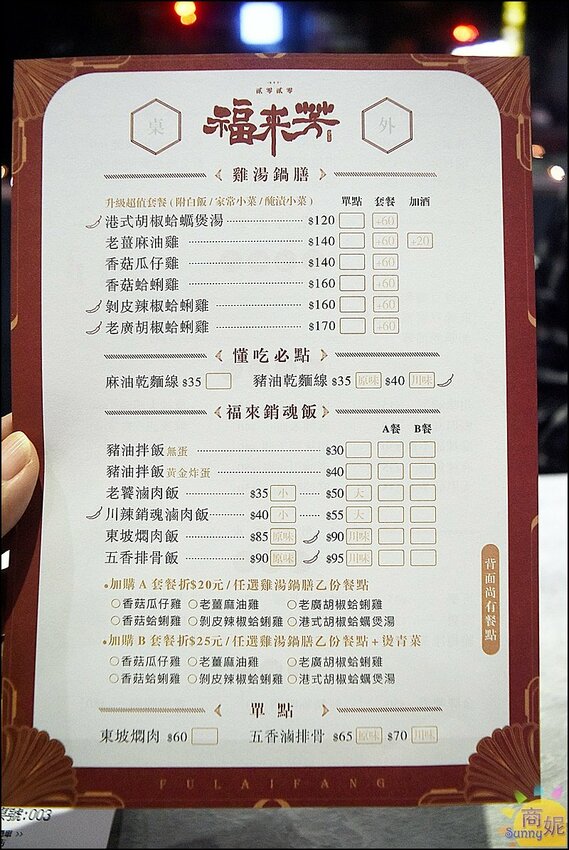 貳零貳零
桌 福来芳 外
雞湯鍋膳
升級超值套餐(附白飯/家常小菜/醃漬小菜) 單點 套餐 加酒
港式胡椒蛤蠣煲湯 $120 +60
老薑麻油雞 $140 +60 +20
香菇瓜仔雞 $140 +60
香菇蛤蜊雞 $160 +60
剝皮辣椒蛤蜊雞 $160 +60
老廣胡椒蛤蜊雞 $170 +60
懂吃必點
麻油乾麵線 $35 豬油乾麵線 $35 原味 $40 川味
福來銷魂飯
A餐 B餐
豬油拌飯 無蛋 $30
豬油拌飯 黃金炸蛋 $40
老饕滷肉飯 $35 小 $50 大
川辣銷魂滷肉飯 $40 小 $55 大
東坡燜肉飯 $85 原味 $90 川味
五香排骨飯 $90 原味 $95 川味
•加購 A 套餐折$20元/任選雞湯鍋膳乙份餐點
○香菇瓜仔雞 ○老薑麻油雞 ○老廣胡椒蛤蜊雞
○香菇蛤蜊雞 ○剝皮辣椒蛤蜊雞 ○港式胡椒蛤蠣煲湯
•加購 B 套餐折$25元/任選雞湯鍋膳乙份餐點+燙青菜
○香菇瓜仔雞 ○老薑麻油雞 ○老廣胡椒蛤蜊雞
○香菇蛤蜊雞 ○剝皮辣椒蛤蜊雞 ○港式胡椒蛤蠣煲湯
背面尚有餐點
單點
東坡燜肉 $60 五香滷排骨 $65 原味 $70 川味
FULAIFANG
桌號:003
Sunny 商妮